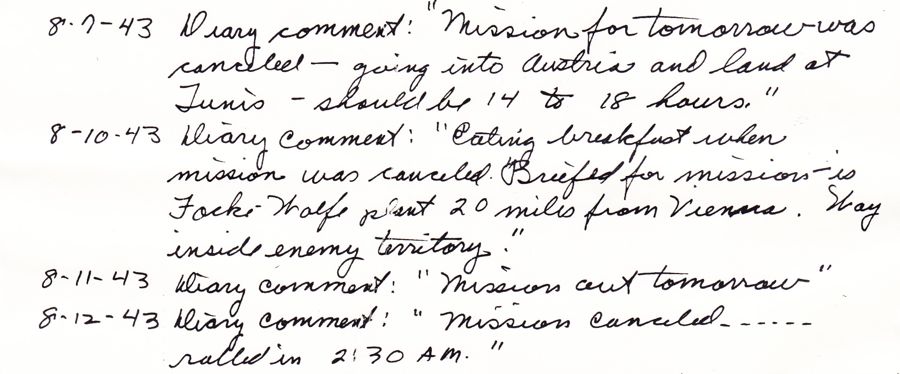 8-7-43 Diary comment: "Mission for tomorrow was
canceled — going into Austria and land at
Tunis - should be 14 to 18 hours."
8-10-43 Diary comment: "Eating breakfast when
mission was canceled. Briefed for mission - is
Focke-Wolfe plant 20 miles from Vienna. Way
inside enemy territory."
8-11-43 Diary comment: "Mission out tomorrow"
8-12-43 Diary comment: "Mission canceled------
rolled in 2:30 AM."